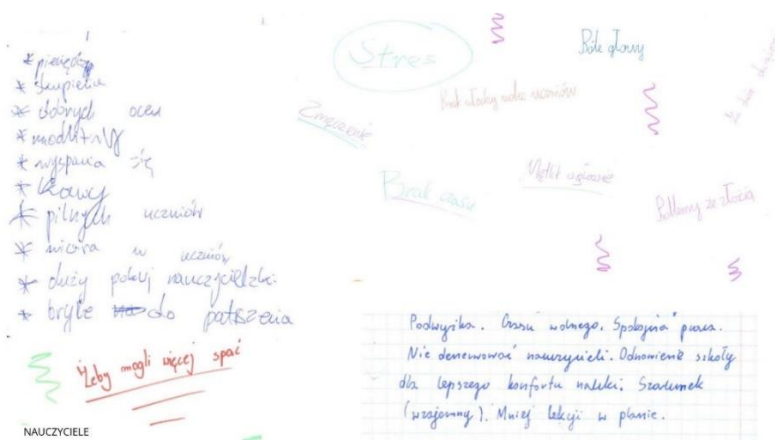 * pieniędzy
* skupienia
* dobrych ocen
* modlitwy
* wyspania się
* kawy
* pilnych uczniów
* wiara w uczniów
* duży pokój nauczycielski
* bryle do patrzenia
Żeby mogli więcej spać
NAUCZYCIELE
Stres
Bóle głowy
Brak władzy wobec uczniów
Zmęczenie
Mętlik w głowie
Brak czasu
Problemy ze złością
Podwyżka. Czasu wolnego. Spokojna praca.
Nie denerwować nauczycieli. Odnowienie szkoły
dla lepszego konfortu nauki. Szacunek
(wzajemny). Mniej lekcji w planie.